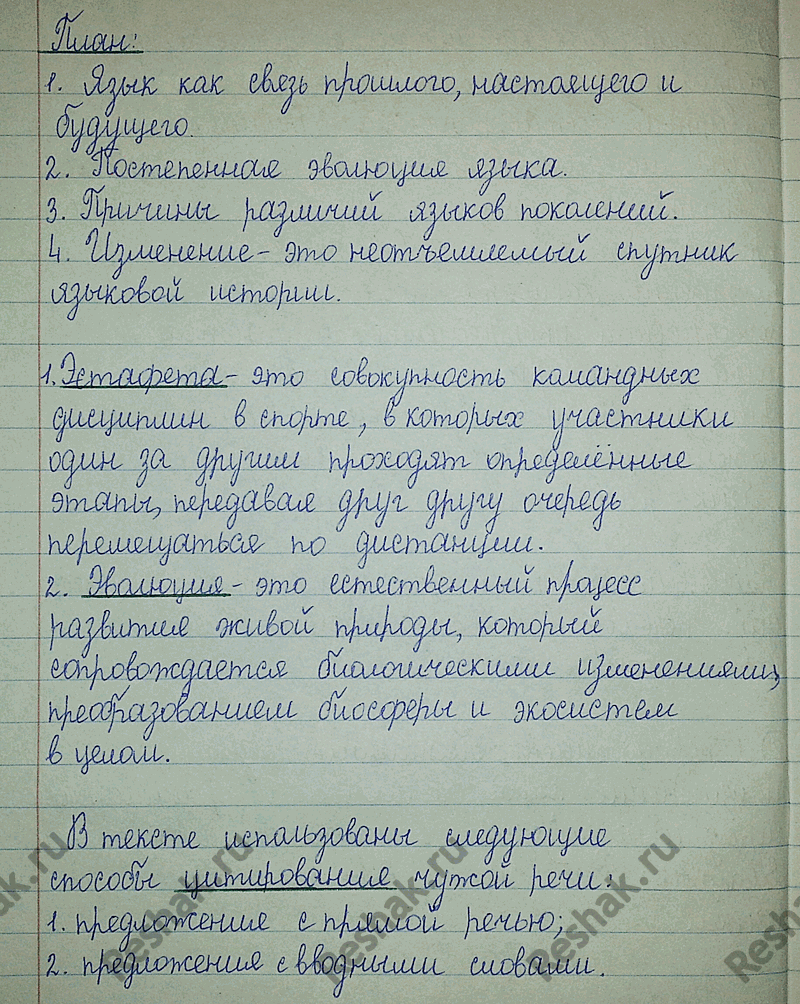 План:
1. Язык как связь прошлого, настоящего и
будущего.
2. Постепенная эволюция языка.
3. Причины различий языков поколений.
4. Изменение – это неотъемлемый спутник
языковой истории.
1. Эстафета – это совокупность командных
дисциплин в спорте, в которых участники
один за другим проходят определённые
этапы, передавая друг другу очередь
перемещаться по дистанции.
2. Эволюция – это естественный процесс
развития живой природы, который
сопровождается биологическими изменениями,
преобразованием биосферы и экосистем
в целом.
В тексте использованы следующие
способы цитирования чужой речи:
1. предложения с прямой речью;
2. предложения с вводными словами.
Reshak.ru
Reshak.ru
Reshak.ru
Reshak.ru